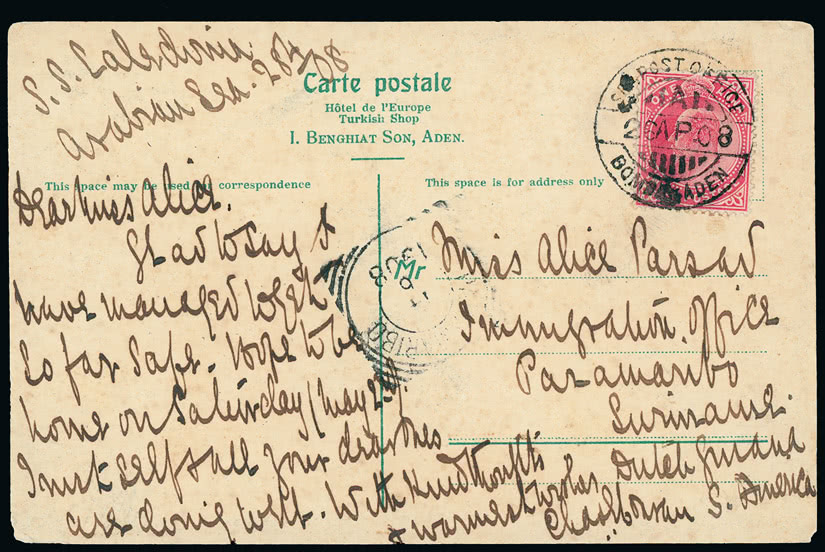 S.S. Caledonia
Arabian Sea. 28/4/08
Carte postale
Hôtel de l'Europe
Turkish Shop
I. BENGHIAT SON, ADEN.
This space may be used for correspondence
Dear Miss Alice.
Glad to say I
have managed to get
so far safe. Hope to be
home on Saturday (May 2nd).
I trust self & all your dear ones
are doing well. With kind thoughts
& warmest wishes
This space is for address only
SEA POST OFFICE
2 AP 08
BOMBAY ADEN
Mr Miss Alice Parsad
Immigration Office
Paramaribo
Suriname.
Dutch Guiana
S. America